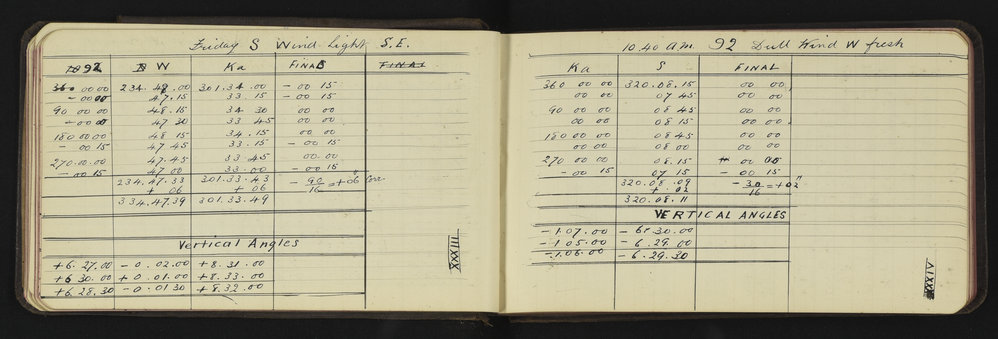 Friday S Wind Light S.E.
92 W Ka FINAL FINAL
360 00 00 234. 48. 00 301. 34. 00 - 00 15
- 00 00 47. 15 33. 15 - 00 15
90 00 00 48. 15 34 30 00 00
- 00 00 47 30 33 45 00 00
180 00 00 48 15 34. 15 00 00
- 00 15 47 45 33. 15 - 00 15
270. 00. 00 47. 45 33. 45 00. 00
- 00 15 47 00 33. 00 - 00 15
234. 47. 33 301. 33. 43 - 90/16 = + 06" Corr.
+ 06 + 06
334. 47. 39 301. 33. 49
Vertical Angles
+6. 27. 00 - 0. 02. 00 + 8. 31. 00
+6 30. 00 + 0. 01. 00 + 8. 33. 00
+6. 28. 30 - 0. 01 30 + 8. 32. 00
XXXIII
10. 40 a.m. 92 Dull Wind W fresh
Ka S FINAL
360 00 00 320. 08. 15 00 00
00 00 07 45 00 00
90 00 00 08 45 00 00
00 00 08 15 00 00
180 00 00 08 45 00 00
00 00 08 00 00 00
270 00 00 08. 15 00 00
- 00 15 07 15 - 00 15
320. 08. 09 - 30/16 = + 02"
+ . 02
320. 08. 11
VERTICAL ANGLES
- 1. 07. 00 - 6. 30. 00
- 1 05. 00 - 6. 29. 00
- 1. 06. 00 - 6. 29. 30